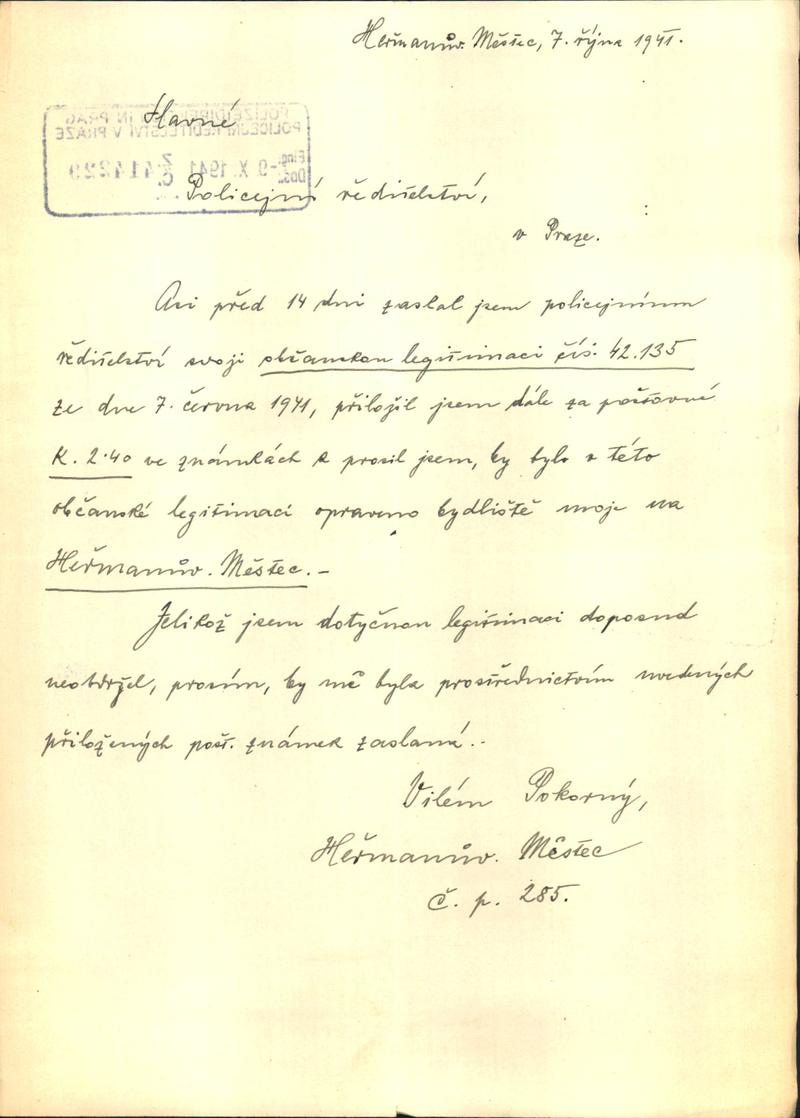 Heřmanův. Městec, 7. října 1941.
POLIZEIDIREKTION IN PRAG
POLICEJNÍ ŘEDITELSTVÍ V PRAZE
Eing.: -9. X. 1941
Došlo:
Z. Č. 414229
Slavné
Policejní ředitelství,
v Praze.
Asi před 14 dni zaslal jsem policejnímu
ředitelství svoji občanskou legitimaci čís. 42.135
ze dne 7. června 1941, přiložil jsem dále za poštovné
K. 2.40 ve známkách a prosil jsem, by bylo v této
občanské legitimaci opraveno bydliště moje na
Heřmanův. Městec. -
Jelikož jsem dotyčnou legitimaci doposud
neobdržel, prosím, by mě byla prostřednictvím uvedených
přiložených pošt. známek zaslaná. -
Vilém Pokorný,
Heřmanův. Městec
č. p. 285.